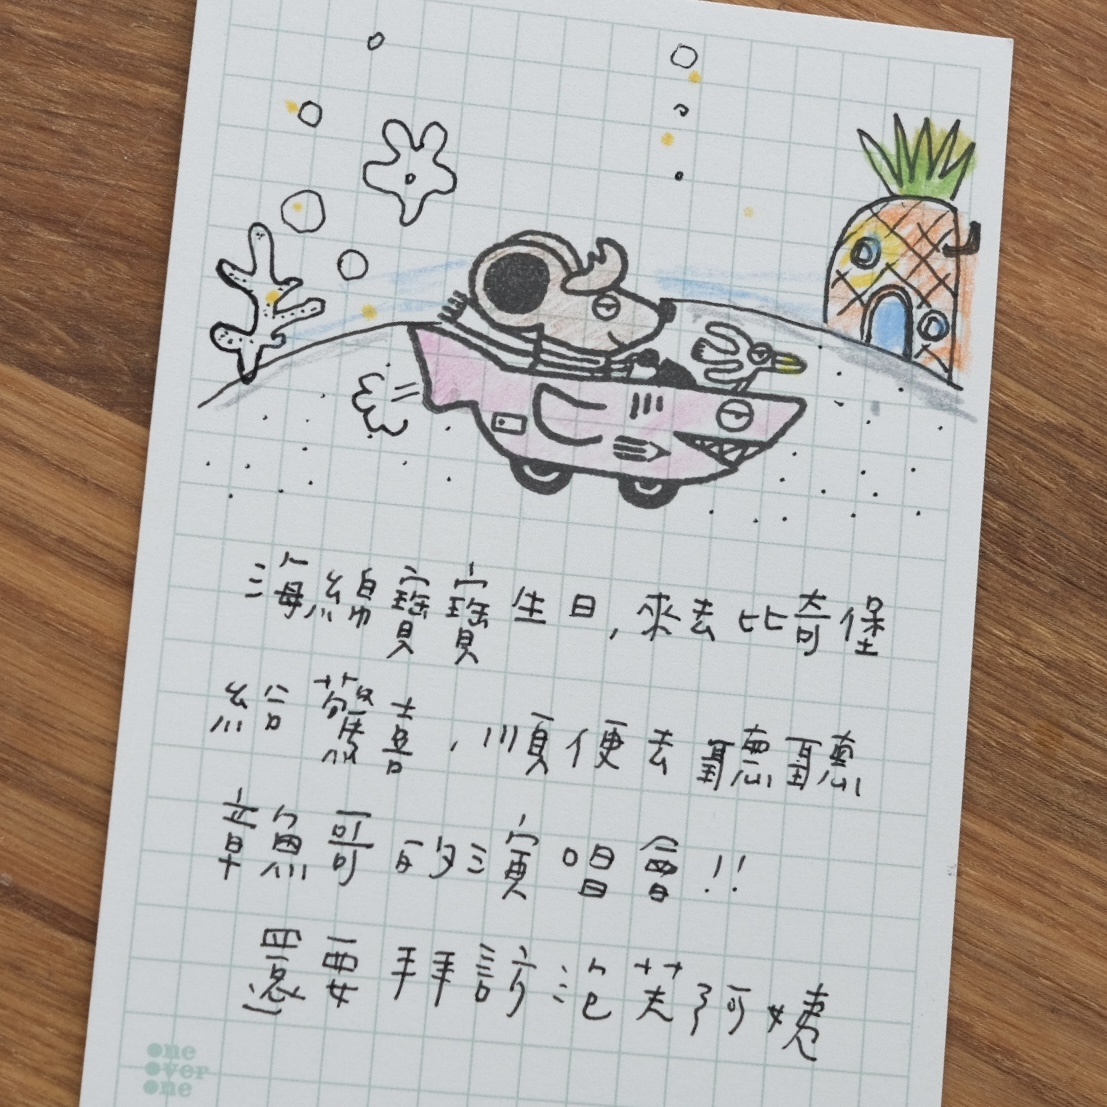 海綿寶寶生日,來去比奇堡
給驚喜,順便去聽聽
章魚哥的演唱會!!
還要拜訪泡芙阿姨
one
over
one